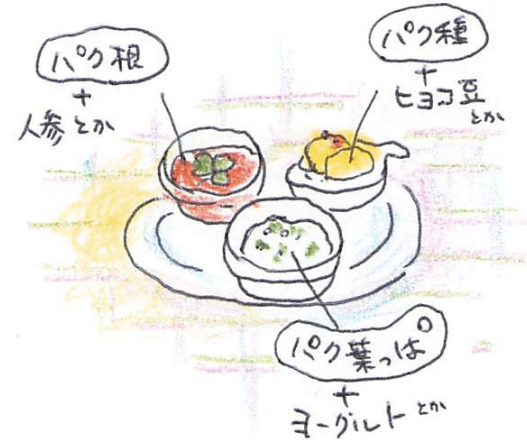 パク根
+
人参とか
パク種
+
ヒヨコ豆
とか
パク葉っぱ
+
ヨーグルトとか